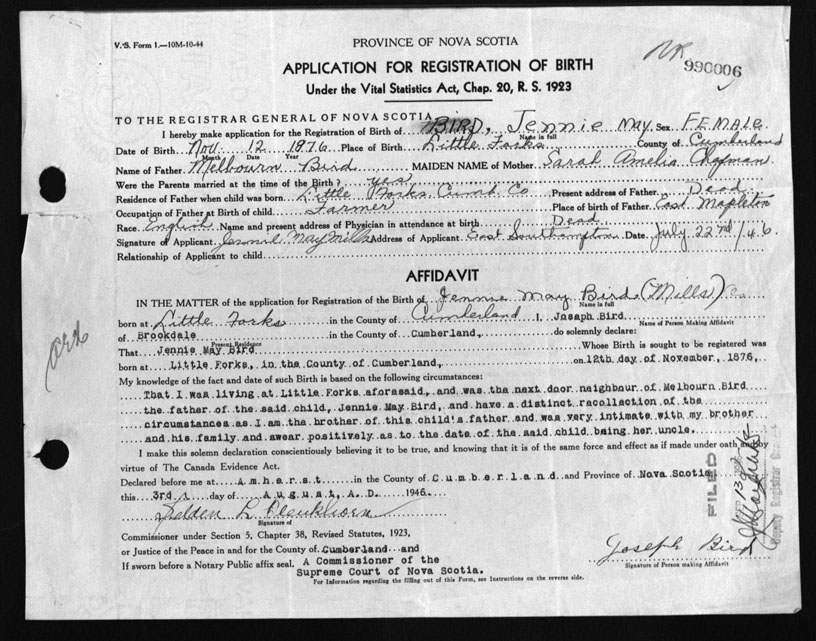 V.S. Form 1.—10M-10-44
PROVINCE OF NOVA SCOTIA
NR 990006
APPLICATION FOR REGISTRATION OF BIRTH
Under the Vital Statistics Act, Chap. 20, R. S. 1923
TO THE REGISTRAR GENERAL OF NOVA SCOTIA
I hereby make application for the Registration of Birth of BIRD, Jennie May Sex FEMALE
Name in full
Date of Birth Nov. 12 1876 Place of Birth Little Forks County of Cumberland
Month Date Year
Name of Father Melbourn Bird MAIDEN NAME of Mother Sarah Amelia Chapman
Were the Parents married at the time of the Birth? yes
Residence of Father when child was born Little Forks Cumb Co Present address of Father Dead
Occupation of Father at Birth of child Farmer Place of birth of Father East Mapleton
Race English Name and present address of Physician in attendance at birth Dead
Signature of Applicant Jennie May Mills Address of Applicant East Southampton Date July 22nd/46
Relationship of Applicant to child
AFFIDAVIT
IN THE MATTER of the application for Registration of the Birth of Jennie May Bird (Mills)
Name in full
born at Little Forks in the County of Cumberland I, Joseph Bird
Name of Person Making Affidavit
of Brookdale in the County of Cumberland, do solemnly declare:
Present Residence
That Jennie May Bird Whose Birth is sought to be registered was
born at Little Forks, in the County of Cumberland, on 12th day of November, 1876,
My knowledge of the fact and date of such Birth is based on the following circumstances:
That I was living at Little Forks aforesaid, and was the next door neighbour of Melbourn Bird
the father of the said child, Jennie May Bird, and have a distinct recollection of the
circumstances as I am the brother of this child's father and was very intimate with my brother
and his family and swear positively as to the date of the said child being her uncle.
I make this solemn declaration conscientiously believing it to be true, and knowing that it is of the same force and effect as if made under oath and by
virtue of The Canada Evidence Act.
Declared before me at Amherst in the County of Cumberland and Province of Nova Scotia
this 3rd day of August, A.D. 1946.
Signature of
Commissioner under Section 5, Chapter 38, Revised Statutes, 1923,
or Justice of the Peace in and for the County of Cumberland and
If sworn before a Notary Public affix seal. A Commissioner of the
Supreme Court of Nova Scotia.
Joseph Bird
Signature of Person making Affidavit
For Information regarding the filling out of this Form, see Instructions on the reverse side.
FILED